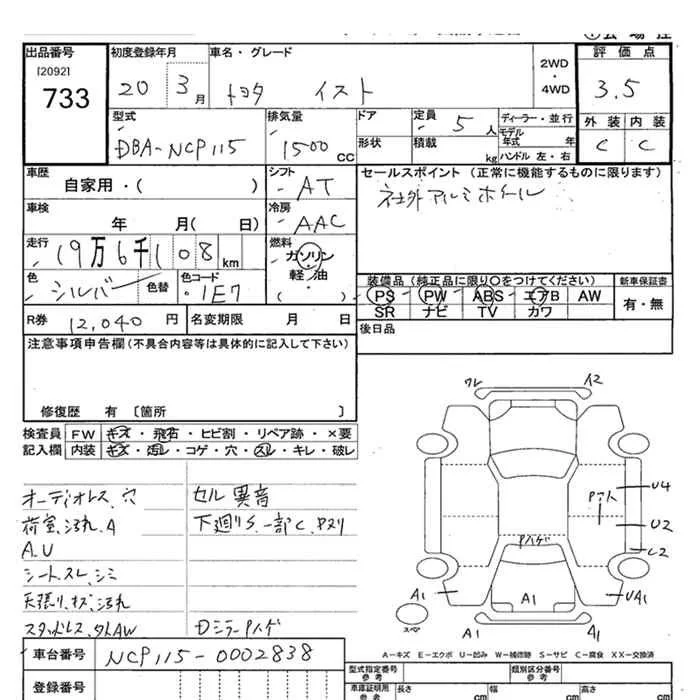 出品番号
[2092]
733
初度登録年月
20 3月
車名・グレード
トヨタ イスト
2WD
・
4WD
評価点
3.5
外装 内装
C C
型式
DBA-NCP115
排気量
1500 CC
ドア
形状
定員
5人
積載
kg
ディーラー・並行
モデル年式 年
ハンドル 左・右
車歴
自家用・( )
シフト
AT
セールスポイント(正常に機能するものに限ります)
社外アルミホイール
車検
年 月( 日)
冷房
AAC
走行
19万6千108km
燃料
ガソリン
軽油
( )
色
シルバー
色替
色コード
1E7
装備品(純正品に限り○をつけてください)
新車保証書
PS PW ABS エアB AW
SR ナビ TV カワ
有・無
R券 12,040円
名変期限 月 日
後日品
注意事項申告欄(不具合内容等は具体的に記入して下さい)
修復歴 有 〔箇所 〕
検査員 FW キズ・飛石・ヒビ割・リペア跡・×要
記入欄 内装 キズ・汚レ・コゲ・穴・スレ・キレ・破レ
オーディオレス、穴
荷室、汚れ、A
A.U
シートスレ、シミ
天張リ、キズ、汚れ
スタッドレス、外AW
セル異音
下廻りS、一部C、Pヌリ
Dミラー Pハゲ
ワレ
イ2
U4
U2
C2
Pハゲ
A1
A1
UA1
スペア
A1
A1
A-キズ E-エクボ U-凹み W-補修跡 S-サビ C-腐食 XX-交換済
車台番号 NCP115-0002838
登録番号
型式指定番号
参考
類別区分番号
参考
車庫証明用
参考
長さ cm
幅 cm
高さ cm